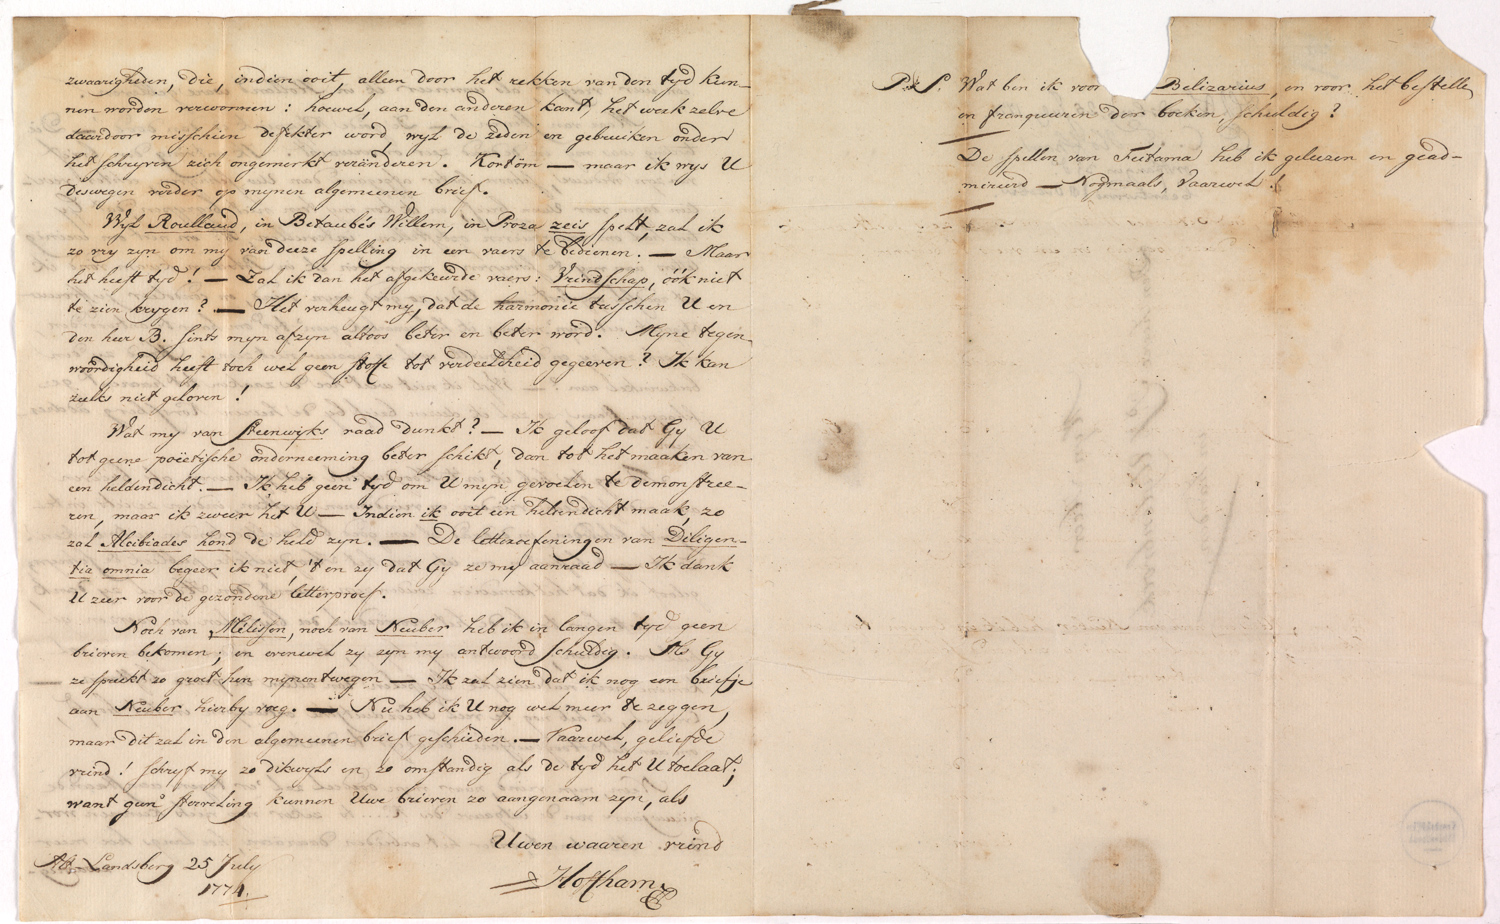 zwaarigheden, die, indien ooit, alleen door het rekken van den tyd kun-
nen worden verwonnen: hoewel, aan den anderen kant, het werk zelve
daardoor misschien defekter word, wyl de zeden en gebruiken onder
het schryven zich ongemerkt veränderen. Kortöm — maar ik wys U
deswegen verder op mynen algemeenen brief.
Wyl Roulland, in Betaubés Willem, in Proza zeis spelt, zal ik
zo vry zyn om my van deeze spelling in een vaers te bedienen. — Maar
het heeft tyd! — Zal ik dan het afgekeurde vaers: Vrindschap, óók niet
te zien krygen? — Het verheugt my, dat de harmonie tusschen U en
den heer B. sints myn afzyn altoos beter en beter word. Myne tegen-
woordigheid heeft toch wel geen stoffe tot verdeeldheid gegeeven? Ik kan
zulks niet geloven!
Wat my van Steenwijks raad dunkt? — Ik geloof dat Gy U
tot geene poëetische onderneeming beter schikt, dan tot het maaken van
een heldendicht. — Ik heb geen tyd om U mijn gevoelen te demonstree-
ren, maar ik zweer het U — Indien ik ooit een heldendicht maak, zo
zal Alcibiades hond de held zyn. — De letteroefeningen van Diligen-
tia omnia begeer ik niet, 't en zy dat Gy ze my aanraad — Ik dank
U zeer voor de gezondene letterproef.
Noch van Mëlissen, noch van Neuber heb ik in langen tyd geen
brieven bekomen; en evenwel zy zyn my antwoord schuldig. Als Gy
ze spreekt zo groet hen mynentwegen — Ik zal zien dat ik nog een briefje
aan Neuber hierby voeg. — Nu heb ik U nog wel meer te zeggen,
maar dit zal in den algemeenen brief geschieden. — Vaarwel, geliefde
vrind! schryf my zo dikwyls en zo omstandig als de tyd het U toelaat;
want geen sterveling kunnen Uwe brieven zo aangenaam zyn, als
Uwen waaren vrind
Hoffham
Alt-Landsberg 25 July
1774.
P.S. Wat ben ik voor Belizarius, en voor het bestelle
en franqueeren der boeken, schuldig?
De spellen van Feitama heb ik geleezen en gead-
mireerd — Nogmaals, Vaarwel!